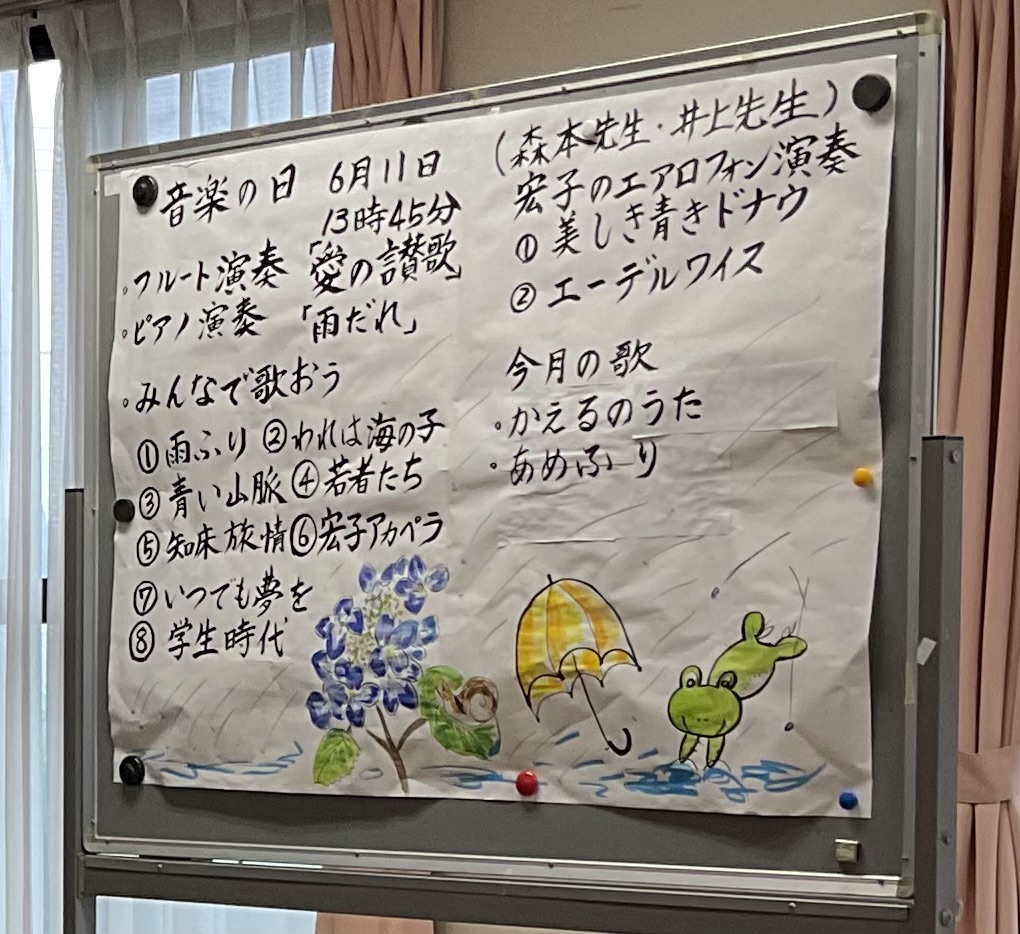 音楽の日 6月11日
13時45分
。フルート演奏 「愛の讃歌」
。ピアノ演奏 「雨だれ」
。みんなで歌おう
①雨ふり ②われは海の子
③青い山脈 ④若者たち
⑤知床旅情 ⑥宏子アカペラ
⑦いつでも夢を
⑧ 学生時代
(森本先生・井上先生)
宏子のエアロフォン演奏
① 美しき青きドナウ
② エーデルワイス
今月の歌
。かえるのうた
。あめふり